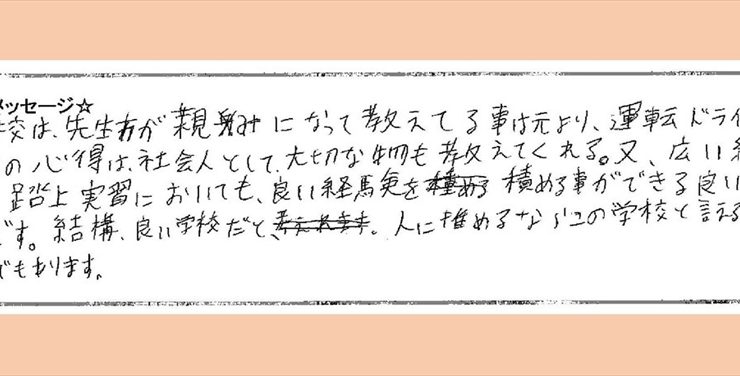 メッセージ☆
校は、先生方が親身になって教えてる事は元より、運転ドライ
の心得は、社会人として、大切な物も教えてくれる。又、広い
路上実習においても、良い経験を積める事ができる良い
です。結構、良い学校だと、。人に推めるならこの学校と言える
でもあります。